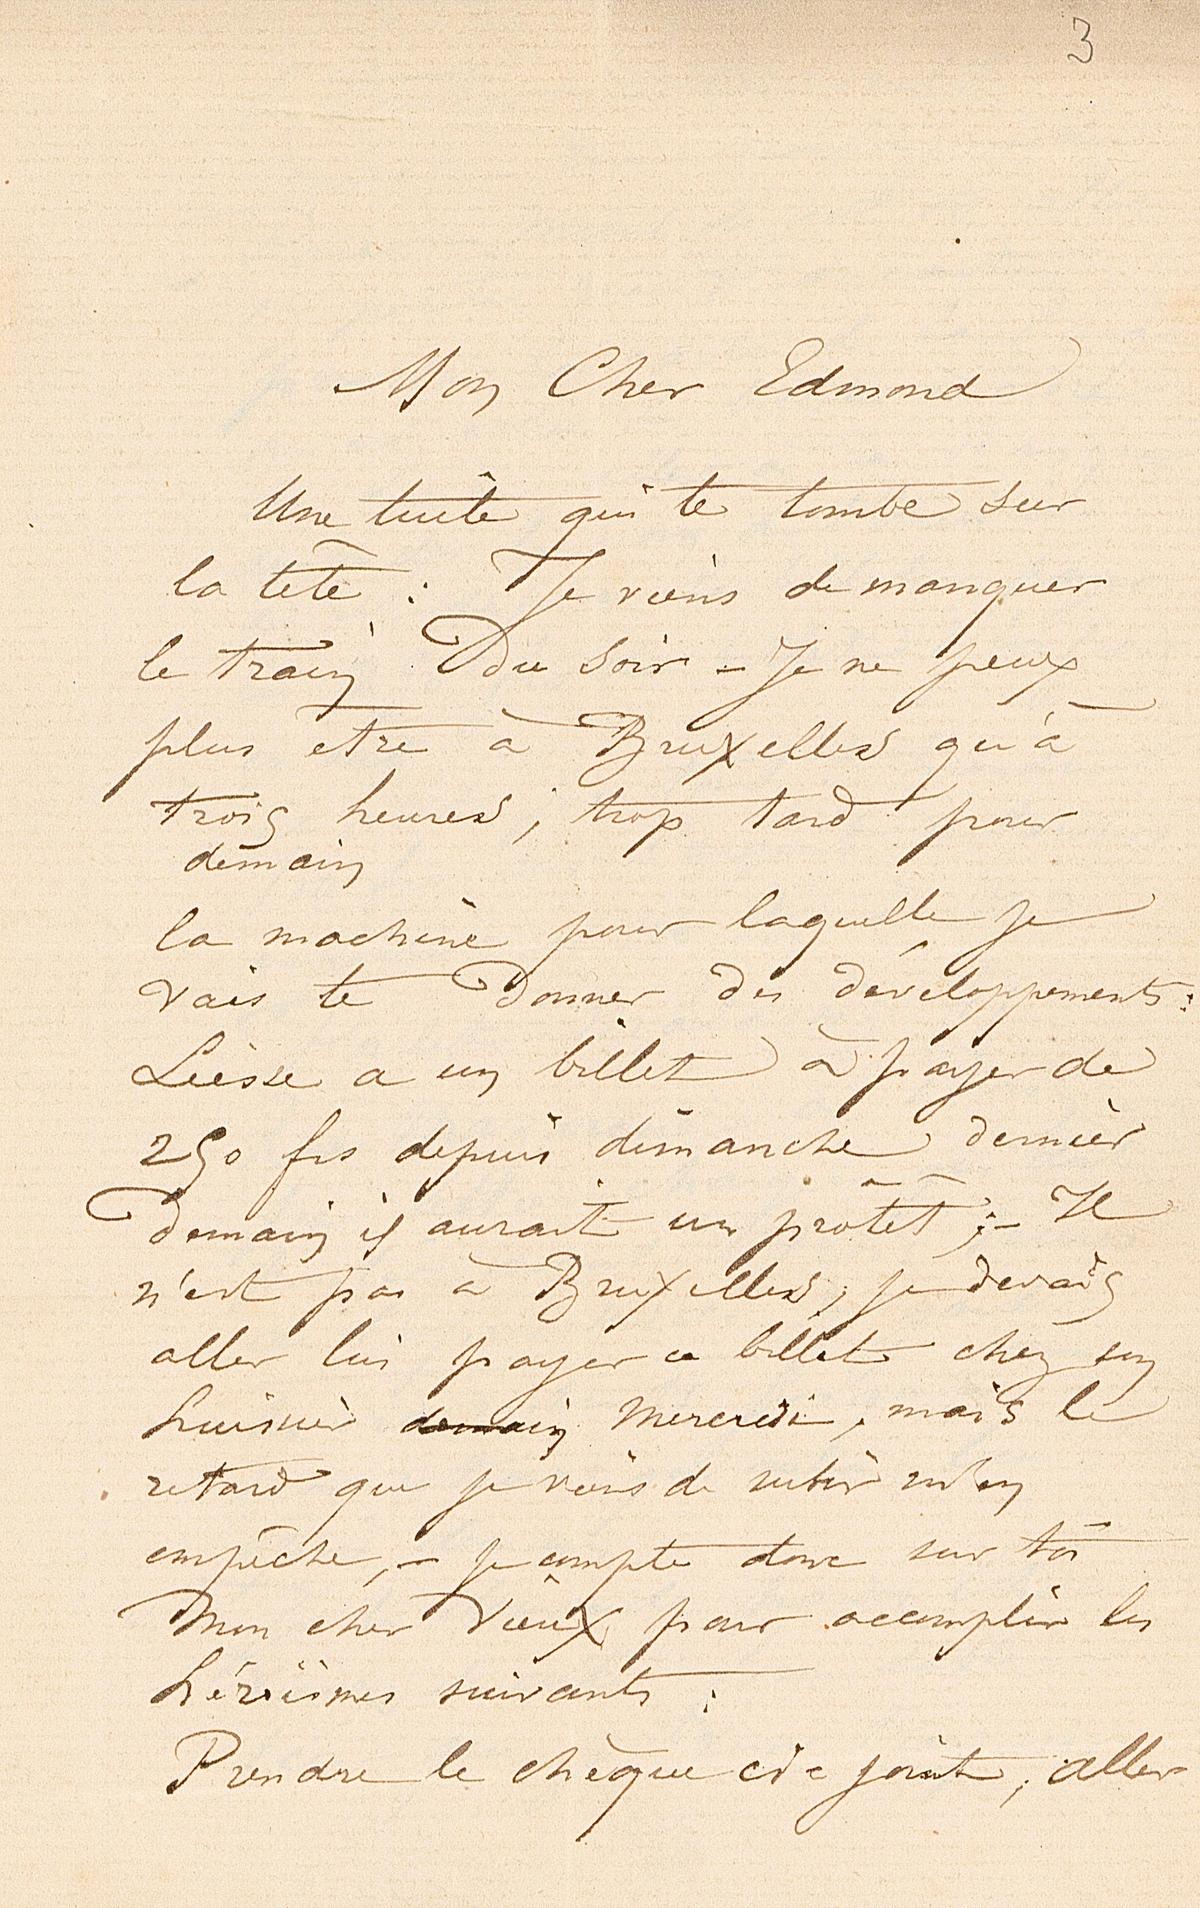 3
Mon Cher Edmond
Une tuile qui te tombe sur
la tête : Je viens de manquer
le train du soir – Je ne peux
plus être à Bruxelles qu'à
trois heures, trop tard pour
demain
la machine pour laquelle je
vais te donner des développements :
Liesse a un billet à payer de
250 frs depuis dimanche dernier
Demain il aurait un protêt ; – Il
n'est pas à Bruxelles, je devais
aller lui payer ce billet chez son
huissier demain Mercredi, mais le
retard que je viens de subir m'en
empêche, – je compte donc sur toi
Mon cher Vieux pour accomplir les
héroïsmes suivants :
Prendre le chèque ci-joint, aller